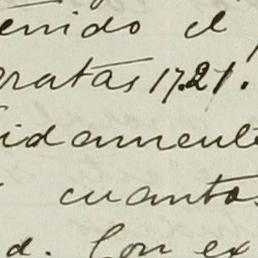 enido el
gratas 1721.
idamente
cuantos
d. Con ex